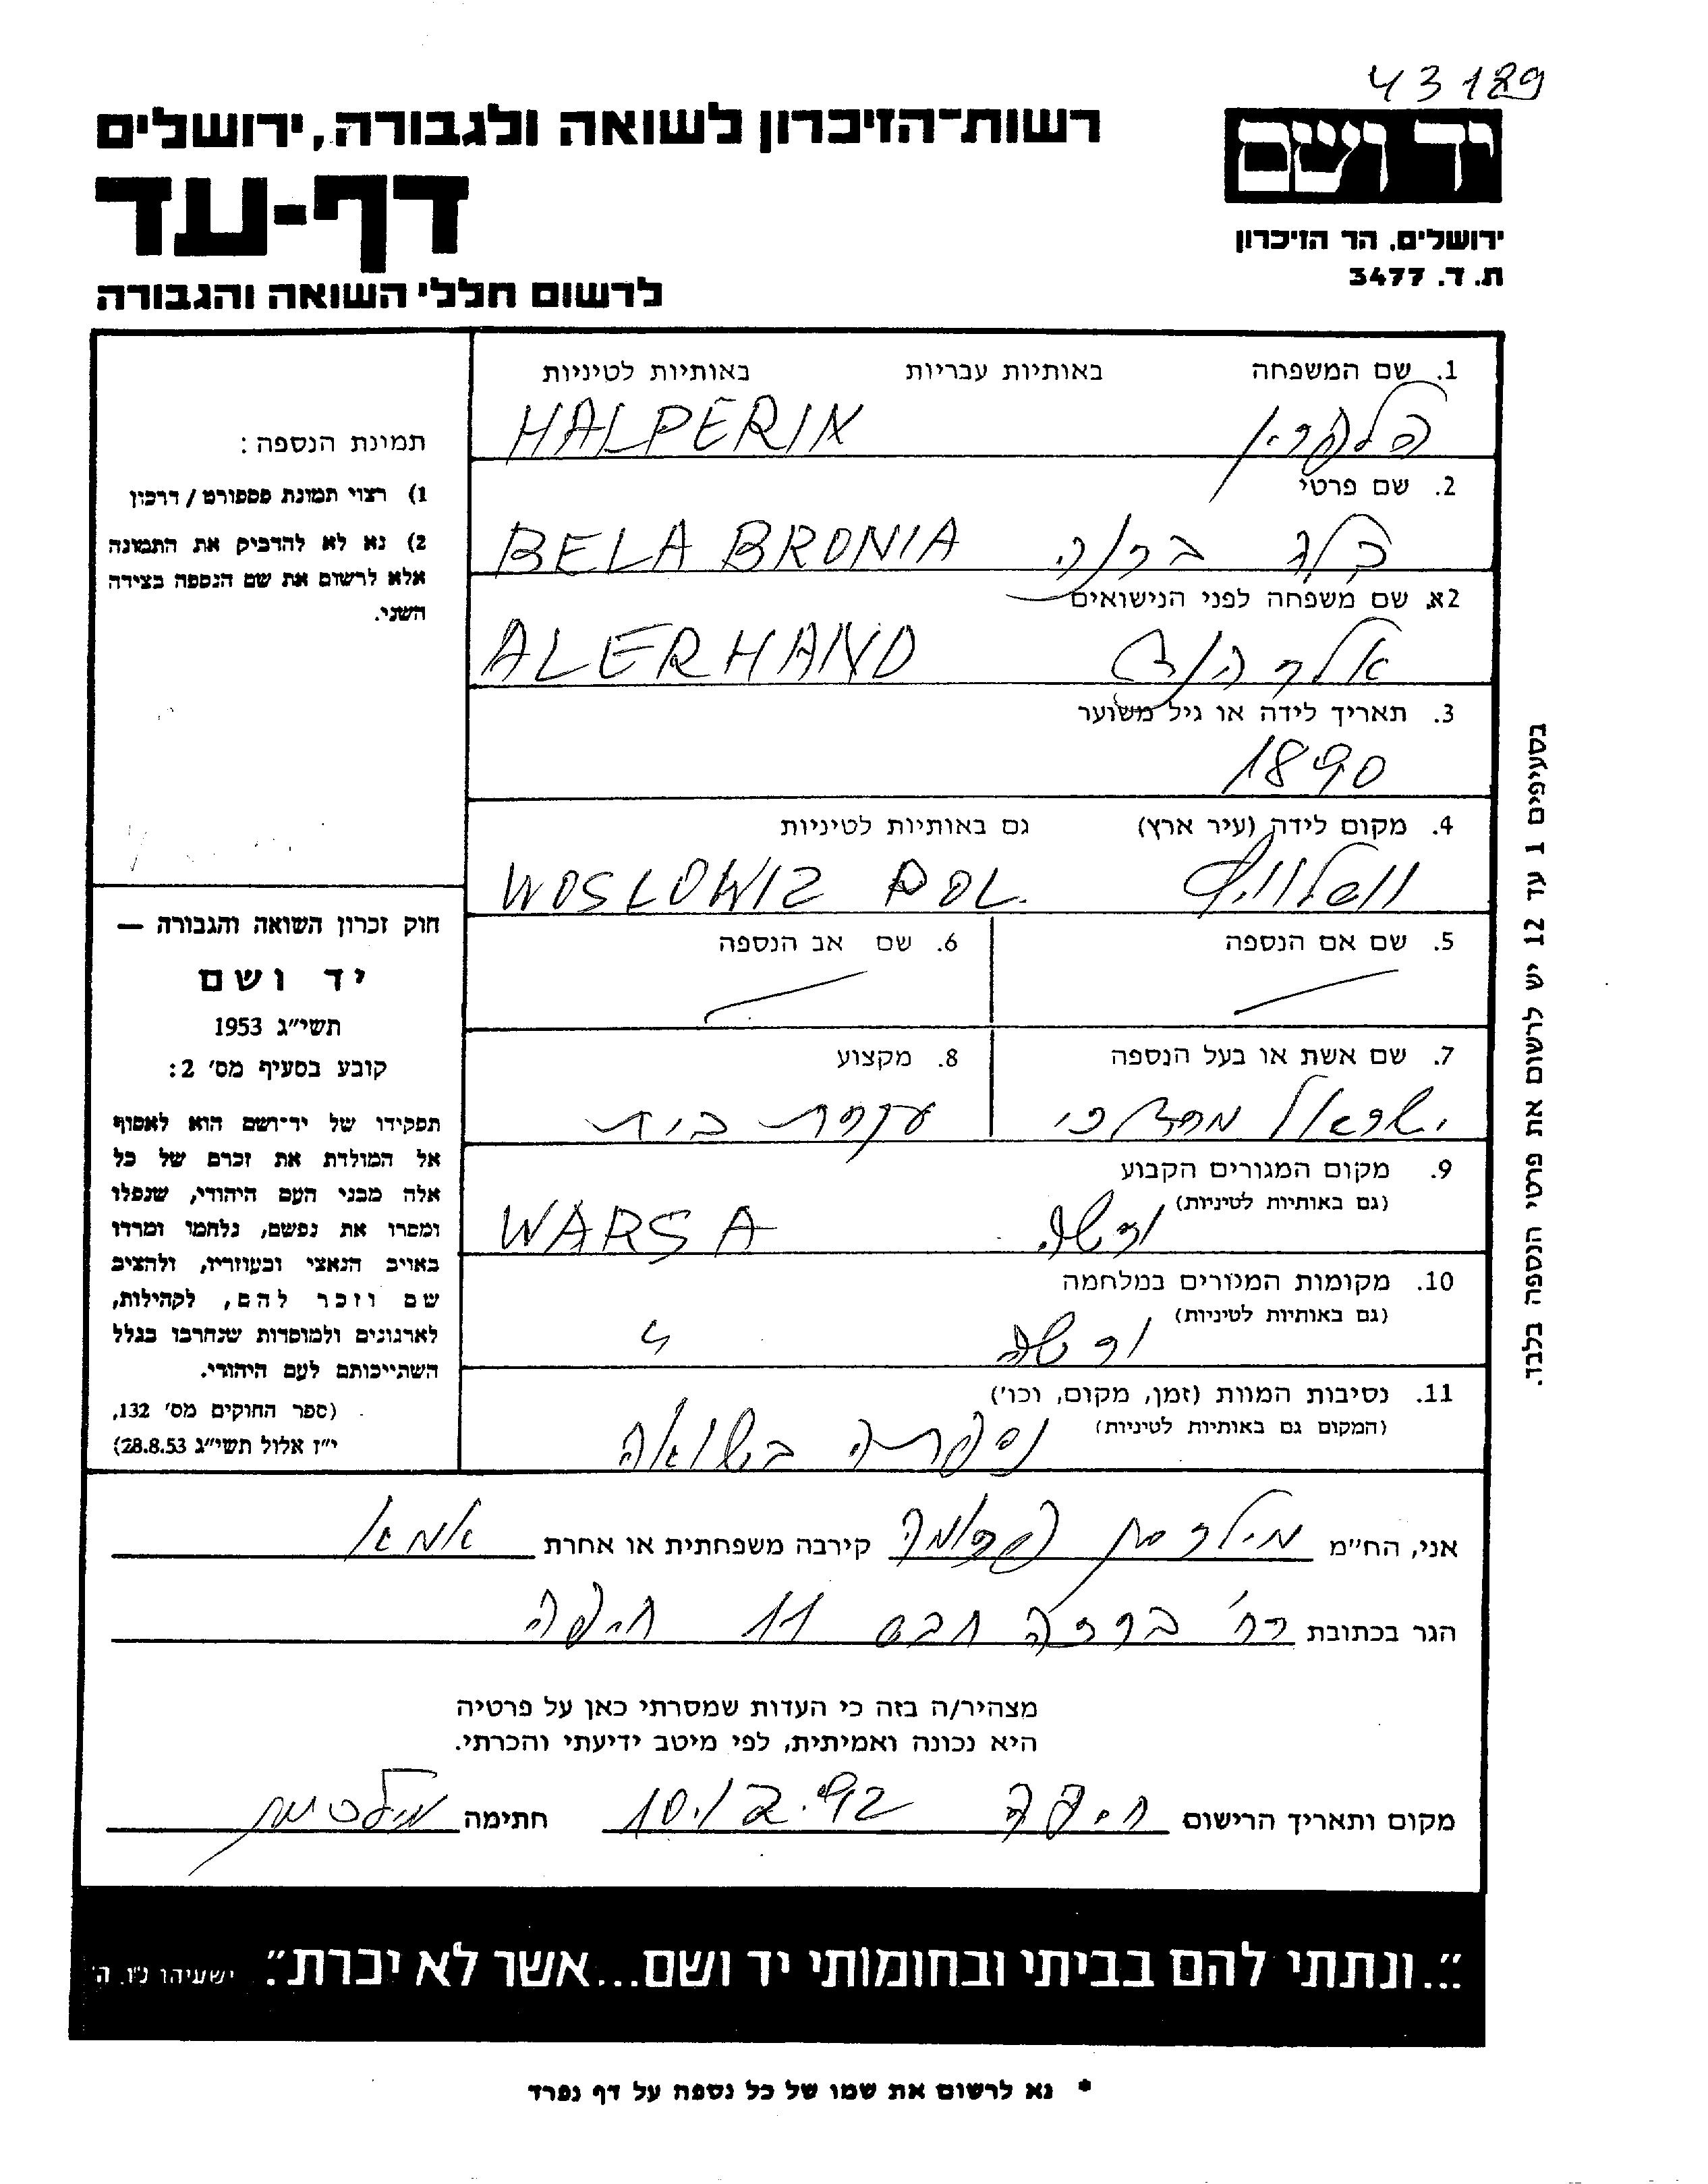 43189
רשות-הזיכרון לשואה ולגבורה, ירושלים
יד ושם
דף-עד
ירושלים, הר הזיכרון
ת. ד. 3477
לרשום חללי השואה והגבורה
1. שם המשפחה באותיות עבריות באותיות לטיניות
הלפרין HALPERIN
2. שם פרטי
בלה ברניה BELA BRONIA
2א. שם משפחה לפני הנישואים
אלרהנד ALERHAND
3. תאריך לידה או גיל משוער
1890
4. מקום לידה (עיר ארץ) גם באותיות לטיניות
WOSLOWIZ POL.
5. שם אם הנספה
6. שם אב הנספה
7. שם אשת או בעל הנספה
ישראל מרדכי
8. מקצוע
עקרת בית
9. מקום המגורים הקבוע
(גם באותיות לטיניות)
ורשה WARSA
10. מקומות המגורים במלחמה
(גם באותיות לטיניות)
ורשה "
11. נסיבות המוות (זמן, מקום, וכו')
(המקום גם באותיות לטיניות)
נספתה בשואה
תמונת הנספה:
1) רצוי תמונת פספורט / דרכון
2) נא לא להדביק את התמונה
אלא לרשום את שם הנספה בצידה
השני.
חוק זכרון השואה והגבורה —
יד ושם
תשי"ג 1953
קובע בסעיף מס' 2:
תפקידו של יד-ושם הוא לאסוף
אל המולדת את זכרם של כל
אלה מבני העם היהודי, שנפלו
ומסרו את נפשם, נלחמו ומרדו
באויב הנאצי ובעוזריו, ולהציב
שם וזכר להם, לקהילות,
לארגונים ולמוסדות שנחרבו בגלל
השתייכותם לעם היהודי.
(ספר החוקים מס' 132,
י"ז אלול תשי"ג 28.8.53)
בסעיפים 1 עד 12 יש לרשום את פרטי הנספה בלבד.
אני, הח"מ קירבה משפחתית או אחרת אמא
הגר בכתובת רח' ברזה חבס 11 חיפה
מצהיר/ה בזה כי העדות שמסרתי כאן על פרטיה
היא נכונה ואמיתית, לפי מיטב ידיעתי והכרתי.
מקום ותאריך הרישום חיפה 10.12.92 חתימה
"...ונתתי להם בביתי ובחומותי יד ושם...אשר לא יכרת". ישעיהו נ"ו, ה'
* נא לרשום את שמו של כל נספה על דף נפרד